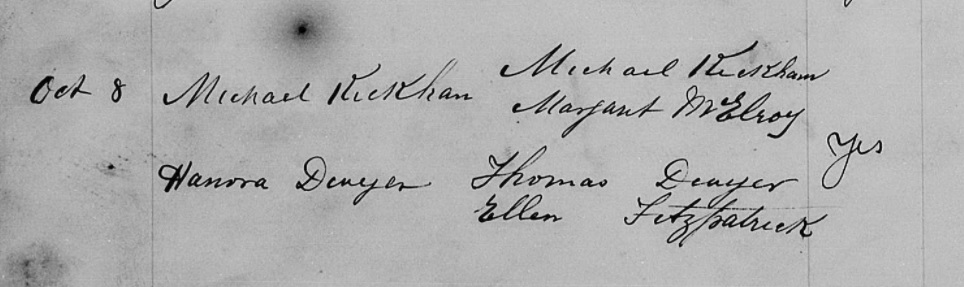 Oct 8 Michael Kickham Michael Kickham
Margaret McElroy
Yes
Hanora Dwyer Thomas Dwyer
Ellen Fitzpatrick